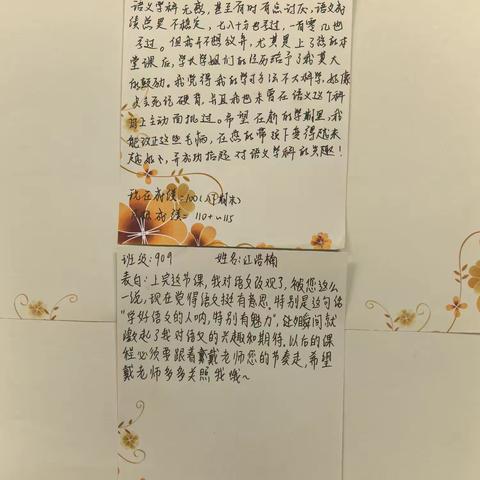 语文学科无感,甚至有时有点讨厌,语文成
绩总是不稳定,七八十分也考过,一百零几也
考过。但我并不想放弃,尤其是上了您的本
堂课后,学长学姐们的经历给予了我莫大
的鼓励。我觉得我的学习方法不太科学,
去死记硬背,并且我也未曾在语文这个科
目上主动面批过。希望在新的学期里,我
能改正这些毛病,在您的带领下变得越来
越好,并成功拾起对语文学科的兴趣!
现在成绩=100(八下期末)
成绩=110+~115
班级:909 姓名:江浩楠
表白:上完这节课,我对语文改观了,被您这么
一说,现在觉得语文挺有意思。特别是这句话
"学好语文的人呐,特别有魅力",让我瞬间就
激起了我对语文的兴趣和期待。以后的课
程必须要跟着戴戴老师您的节奏走,希望
戴老师多多关照我哦~